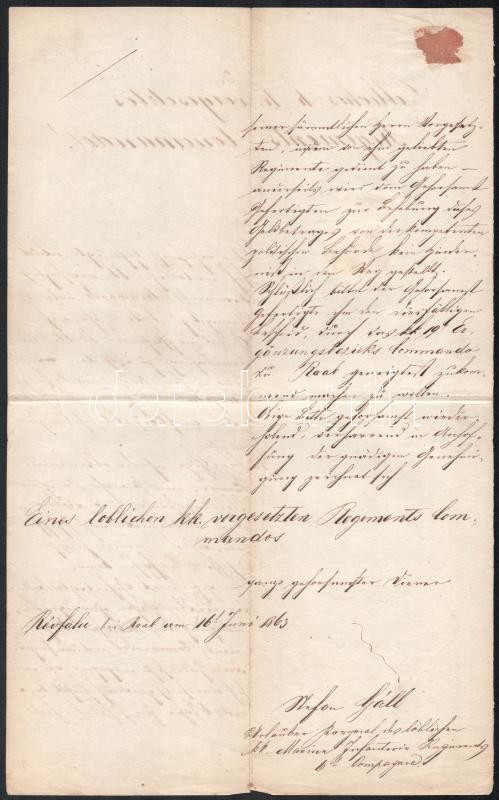 seiner sämmtlichen Herrn Vorgesetz-
ten, geliebten
Regimente gedient zu haben —
anderseits wird dem Gehorsamst
Gefertigten zur Behebung dieses
Geldbetrages von der kompetenten
politischen Behörde kein Hinder-
niß in den Weg gestellt.
Schlüßlich bittet der Gehorsamst
Gefertigte ihm den dießfälligen
Bescheid, durch das kk 19t Er-
gänzungsbezirks Commando
zu Raab geneigtest zukom-
mend machen zu wollen.
Obige Bitte gehorsamst wieder-
holend, verharrend in Anhof-
fung der gnädigen Genehmi-
gung zeichnet sich
Eines löblichen kk. vorgesetzten Regiments Com-
mandos
ganz gehorsamster Diener
Révfalu bei Raab am 16t Juni 1863
Stefan Gáll
Urlauber Korporal des löblichen
kk. Marine Infanterie Regiments
6te Compagnie
darabanth